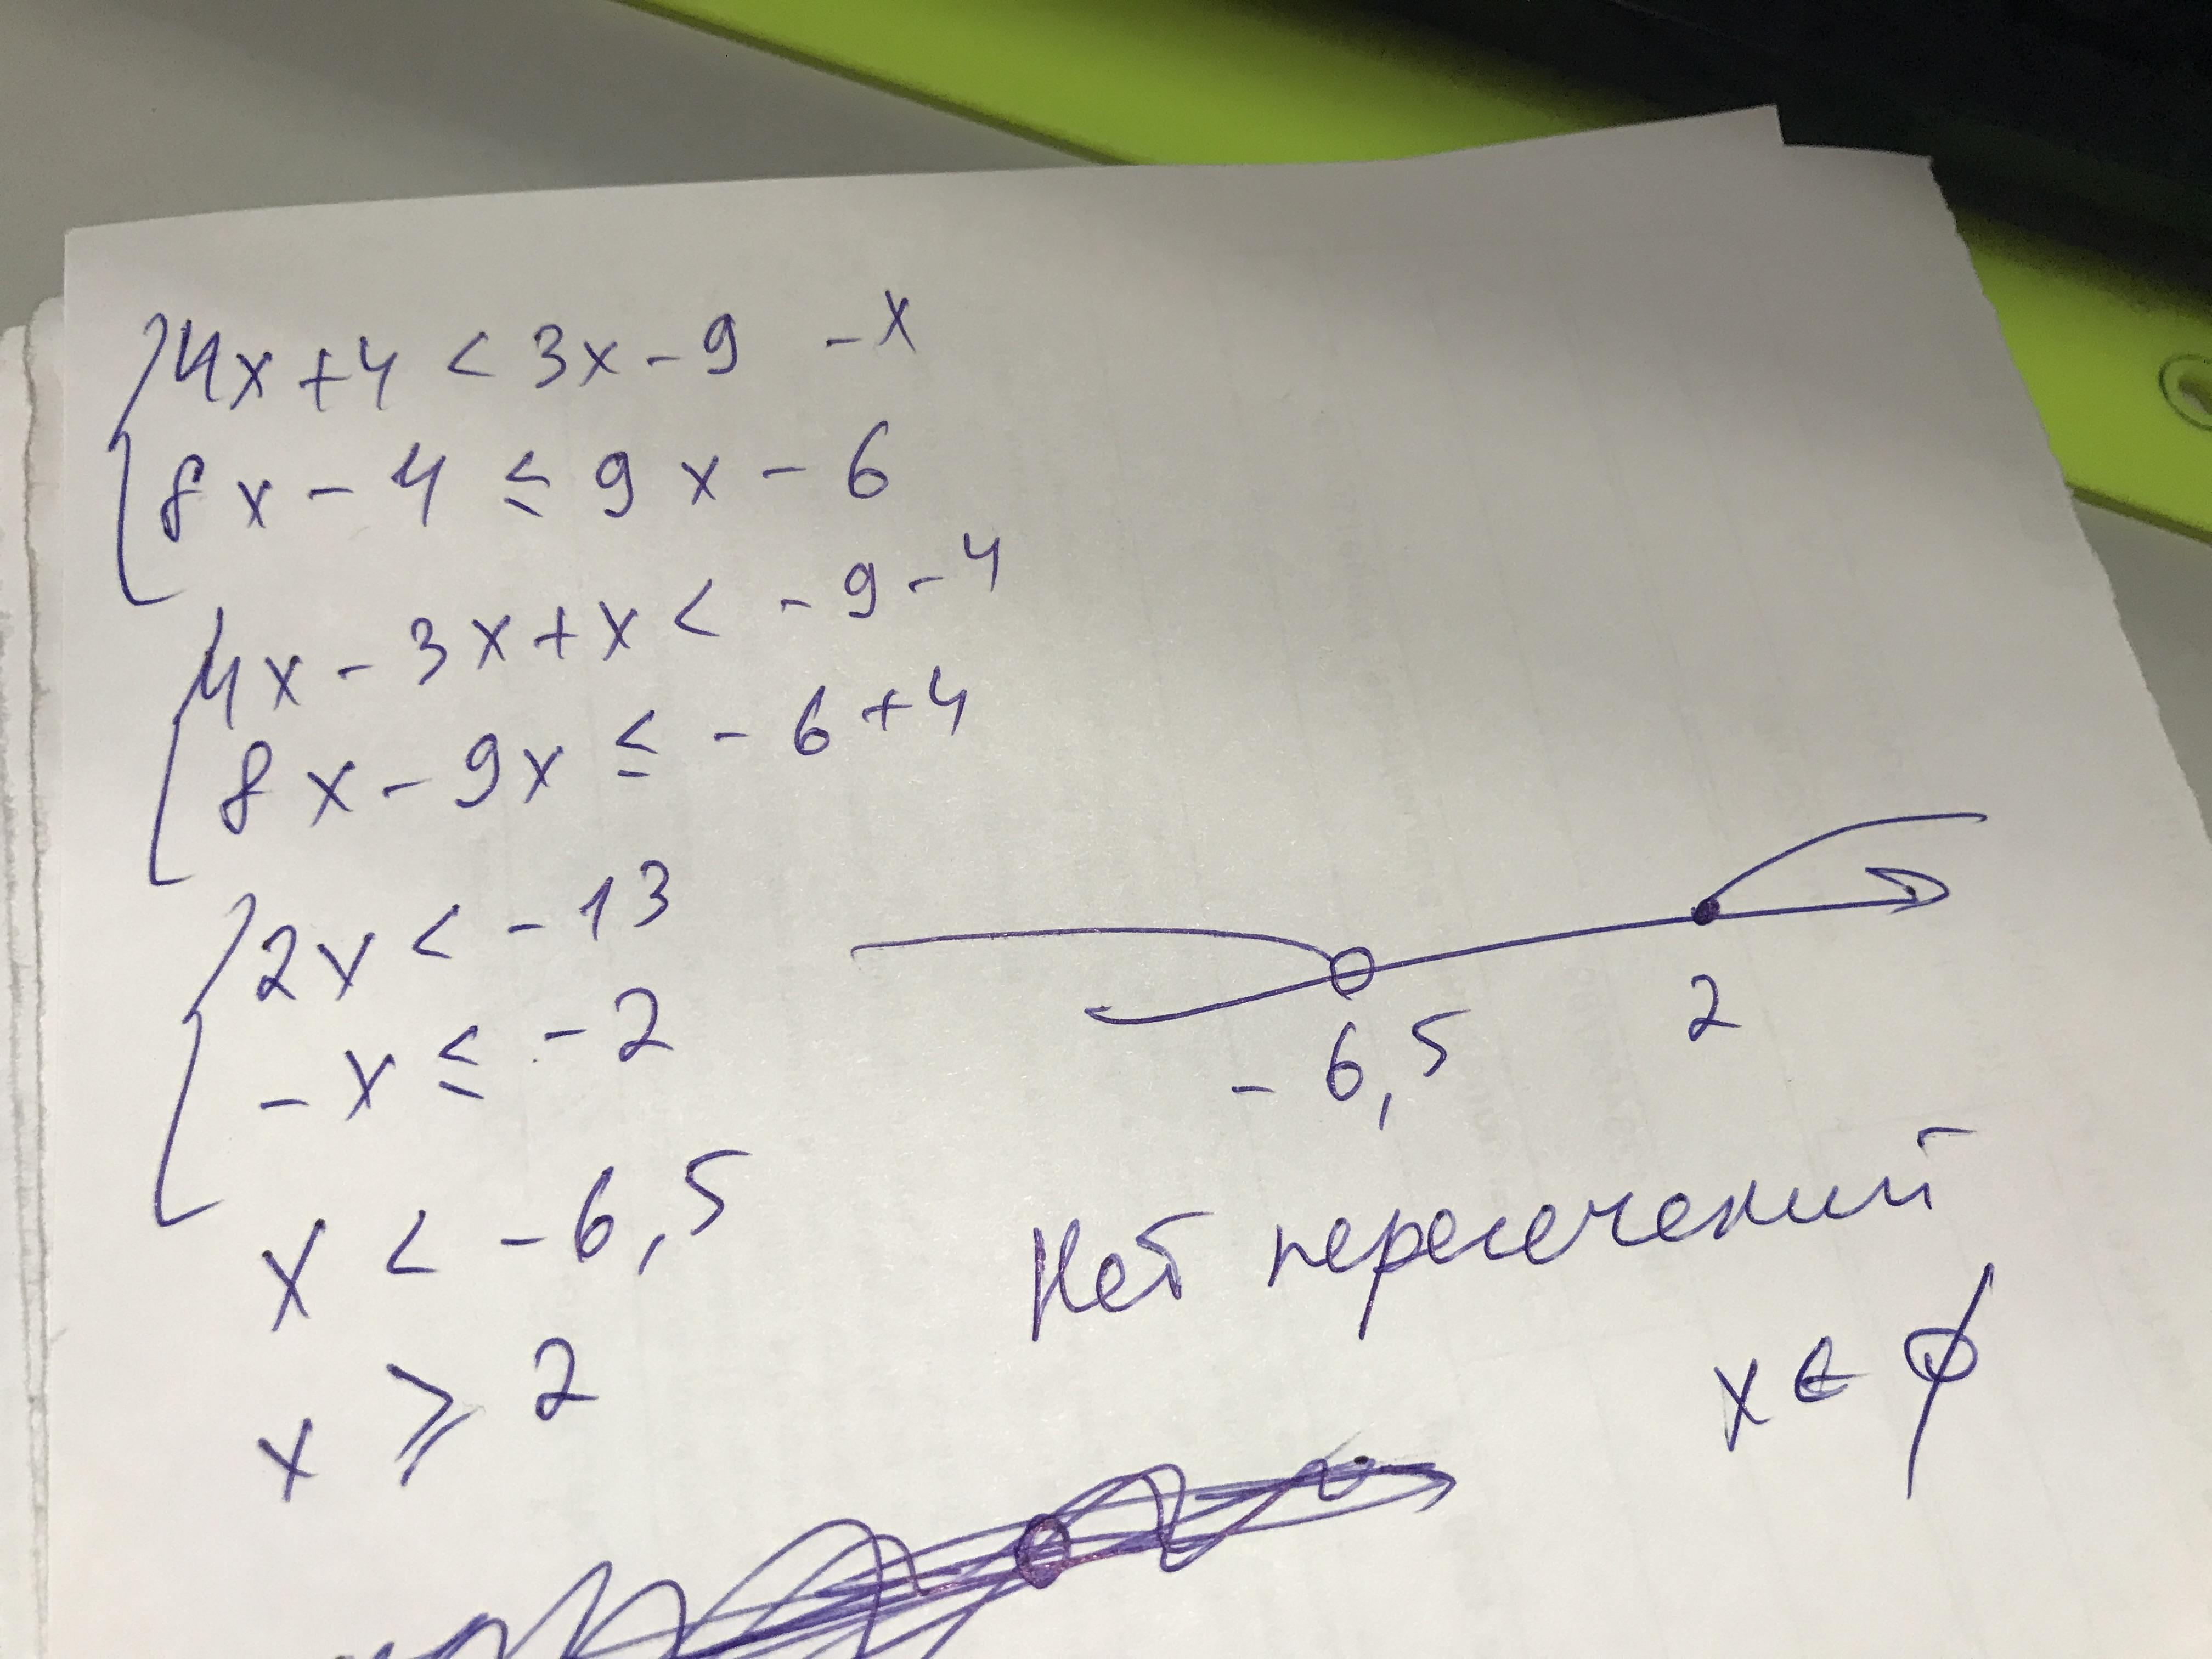 4x+4 < 3x-9 -x
8x-4 ≤ 9x-6
4x-3x+x < -9-4
8x-9x ≤ -6+4
2x < -13
-x ≤ -2
x < -6,5
x ⩾ 2
-6,5 2
Нет пересечений
x ∈ ∅